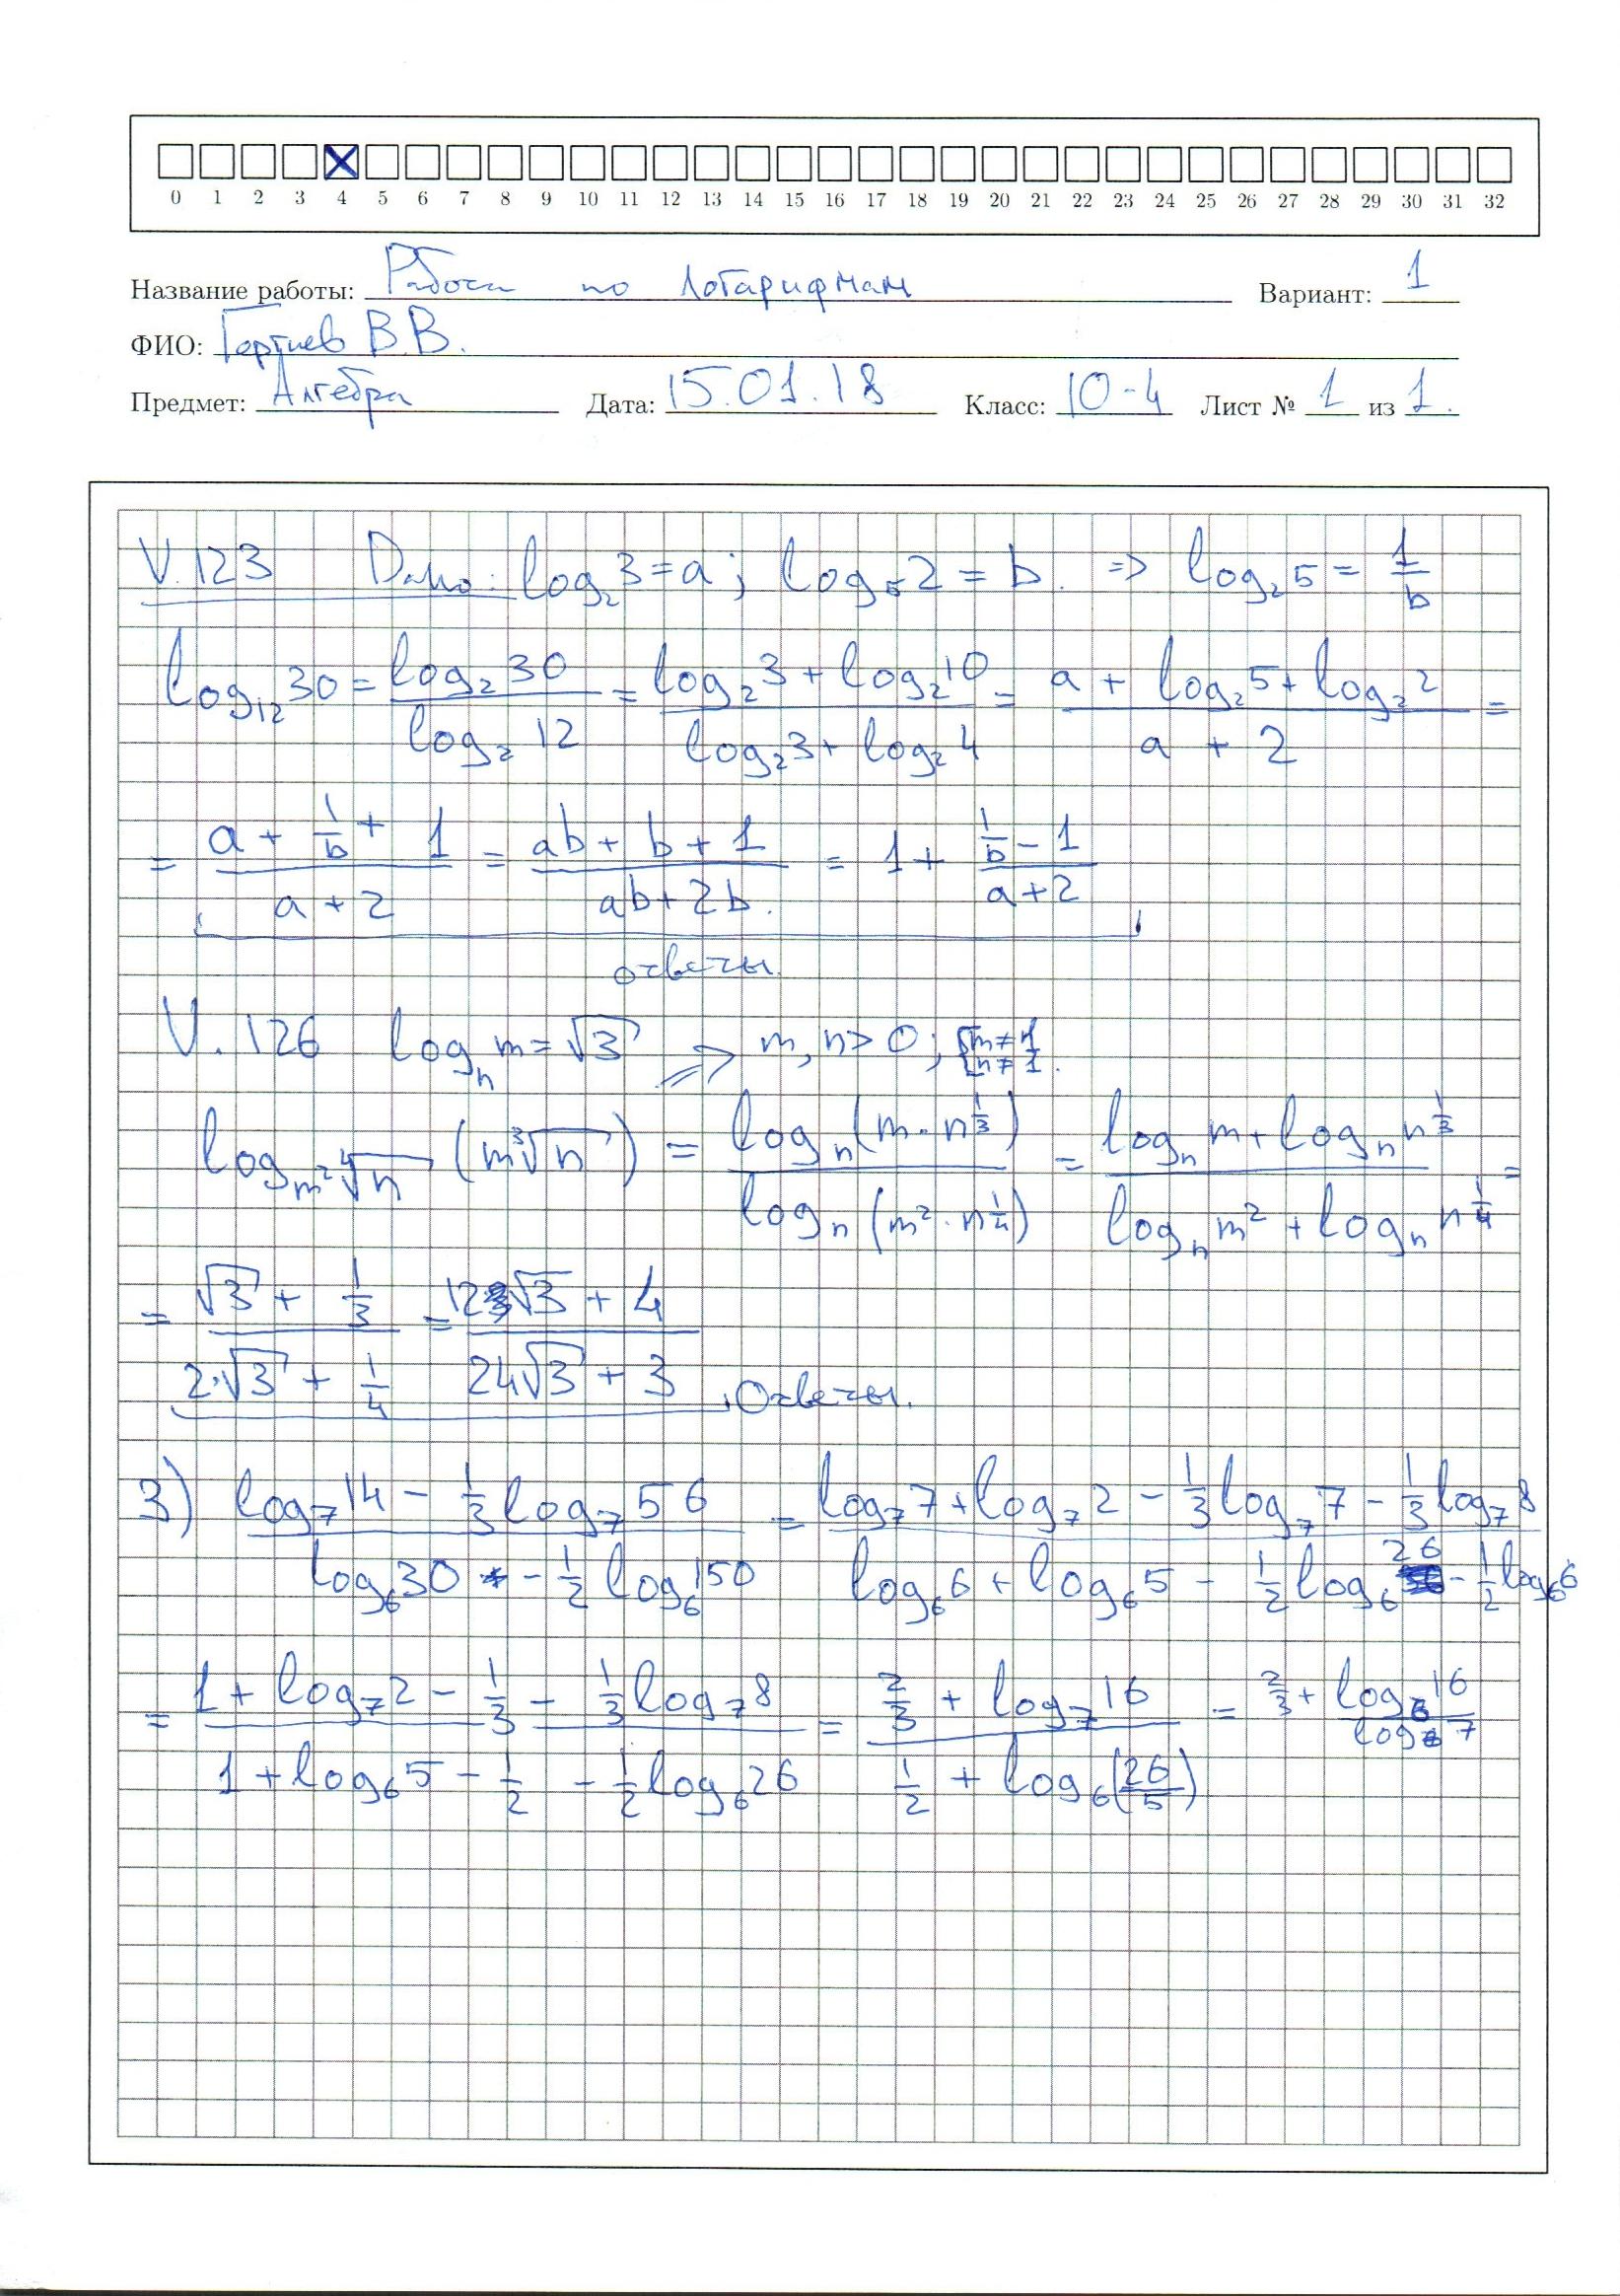 0 1 2 3 4 5 6 7 8 9 10 11 12 13 14 15 16 17 18 19 20 21 22 23 24 25 26 27 28 29 30 31 32
Название работы: Работа по логарифмам Вариант: 1
ФИО: В.В.
Предмет: Алгебра Дата: 15.01.18 Класс: 10-4 Лист № 1 из 1.
V.123 Дано: log₂3 = a; log₅2 = b. ⇒ log₂5 = 1/b
log₁₂30 = (log₂30)/(log₂12) = (log₂3 + log₂10)/(log₂3 + log₂4) = (a + log₂5 + log₂2)/(a + 2) =
= (a + 1/b + 1)/(a + 2) = (ab + b + 1)/(ab + 2b) = 1 + (1/b − 1)/(a + 2)
ответы.
V.126 logₙ m = √3 ⇒ m, n > 0; {m ≠ 1 {n ≠ 1.
log_{m²⁴√n} (m ³√n) = (logₙ(m · n^{1/3}))/(logₙ(m² · n^{1/4})) = (logₙ m + logₙ n^{1/3})/(logₙ m² + logₙ n^{1/4}) =
= (√3 + 1/3)/(2·√3 + 1/4) = (12√3 + 4)/(24√3 + 3) Ответы.
3) (log₇14 − 1/3 log₇56)/(log₆30 − 1/2 log₆150) = (log₇7 + log₇2 − 1/3 log₇7 − 1/3 log₇8)/(log₆6 + log₆5 − 1/2 log₆26 − 1/2 log₆6)
= (1 + log₇2 − 1/3 − 1/3 log₇8)/(1 + log₆5 − 1/2 − 1/2 log₆26) = (2/3 + log₇16)/(1/2 + log₆(26/5)) = 2/3 + (log₆16)/(log₆7)